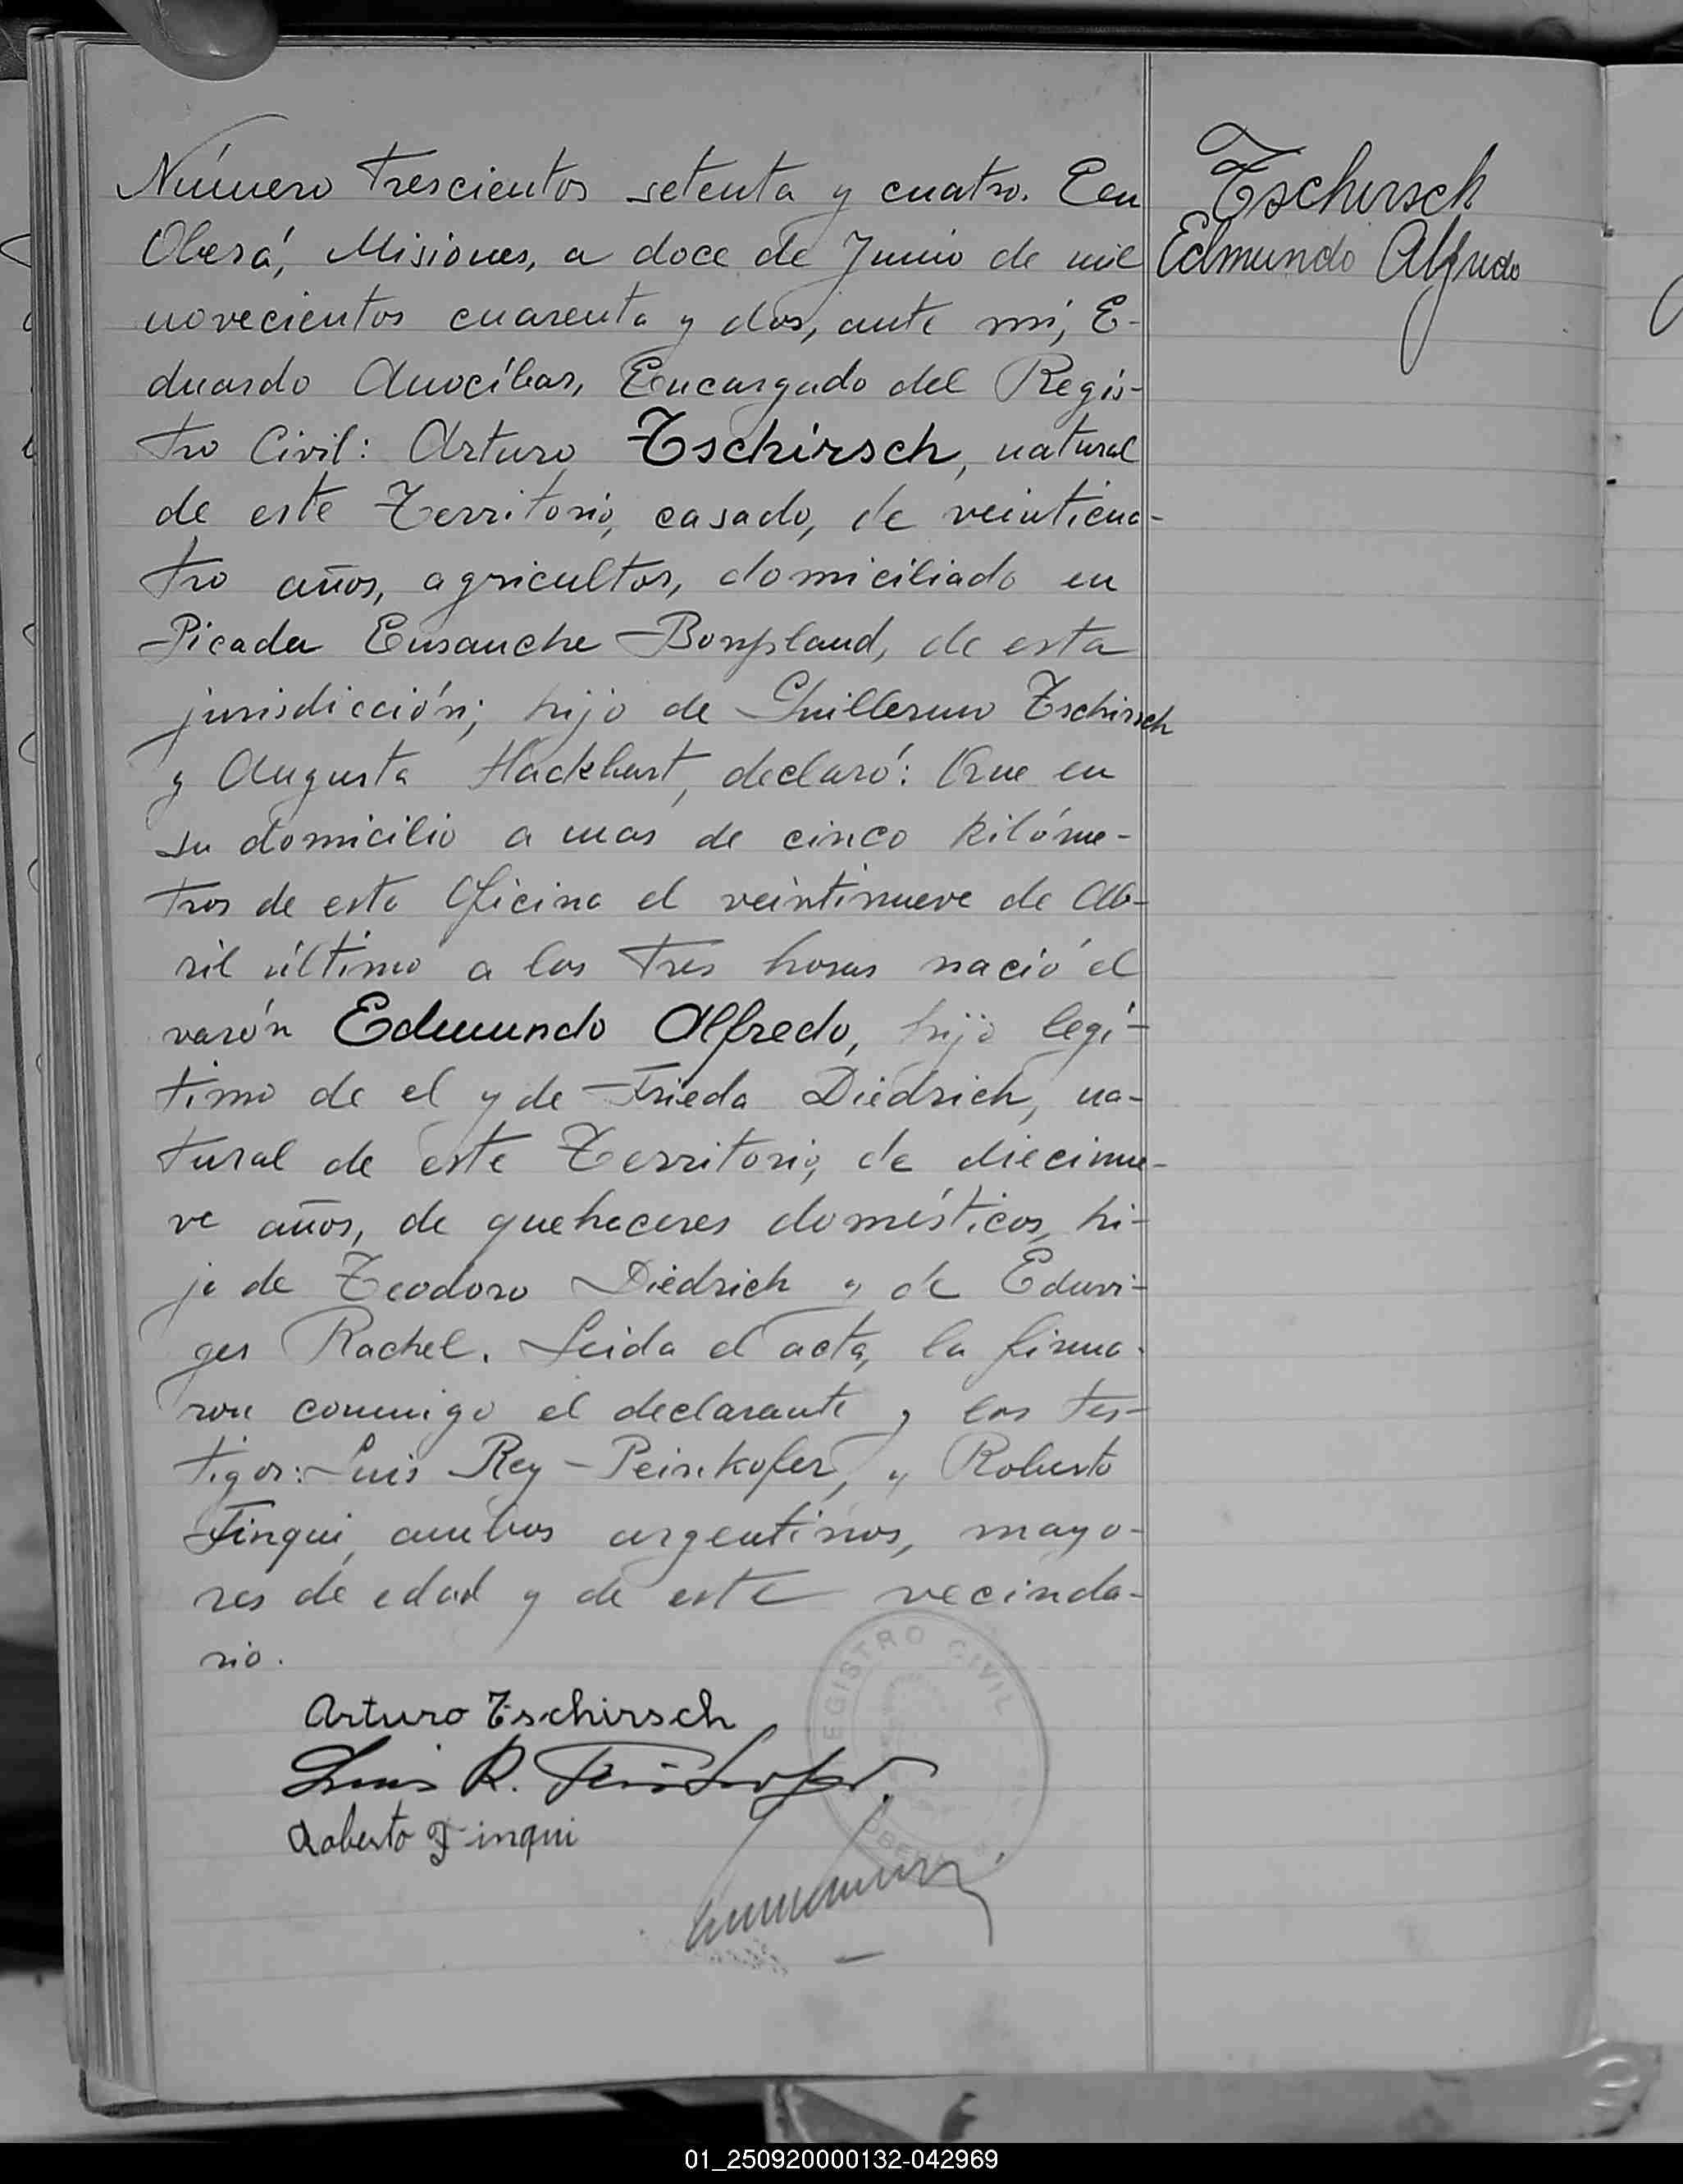 Número trescientos setenta y cuatro. En
Oberá, Misiones, a doce de Junio de mil
novecientos cuarenta y dos, ante mi, E-
duardo Anocíbar, Encargado del Regis-
tro Civil: Arturo Tschirsch, natural
de este Territorio, casado, de veinticua-
tro años, agricultor, domiciliado en
Picada Ensanche Bonpland, de esta
jurisdicción; hijo de Guillermo Tschirsch
y Augusta Hackbart, declaró: Que en
su domicilio a mas de cinco kilóme-
tros de esta Oficina el veintinueve de Ab-
ril último a las tres horas nació el
varón Edmundo Alfredo, hijo legí-
timo de el y de Frieda Diedrich, na-
tural de este Territorio, de diecinue-
ve años, de quehaceres domésticos, hi-
ja de Teodoro Diedrich y de Eduvi-
ges Rachel. Leida el acta, la firma-
ron conmigo el declarante y los tes-
tigos: Luis Rey Peinkofer, y Roberto
Finqui, ambos argentinos, mayo-
res de edad y de este vecinda-
rio.
Tschirsch
Edmundo Alfredo
Arturo Tschirsch
Luis R. Peinkofer.
Roberto Finqui
REGISTRO CIVIL
OBERÁ
01_250920000132-042969